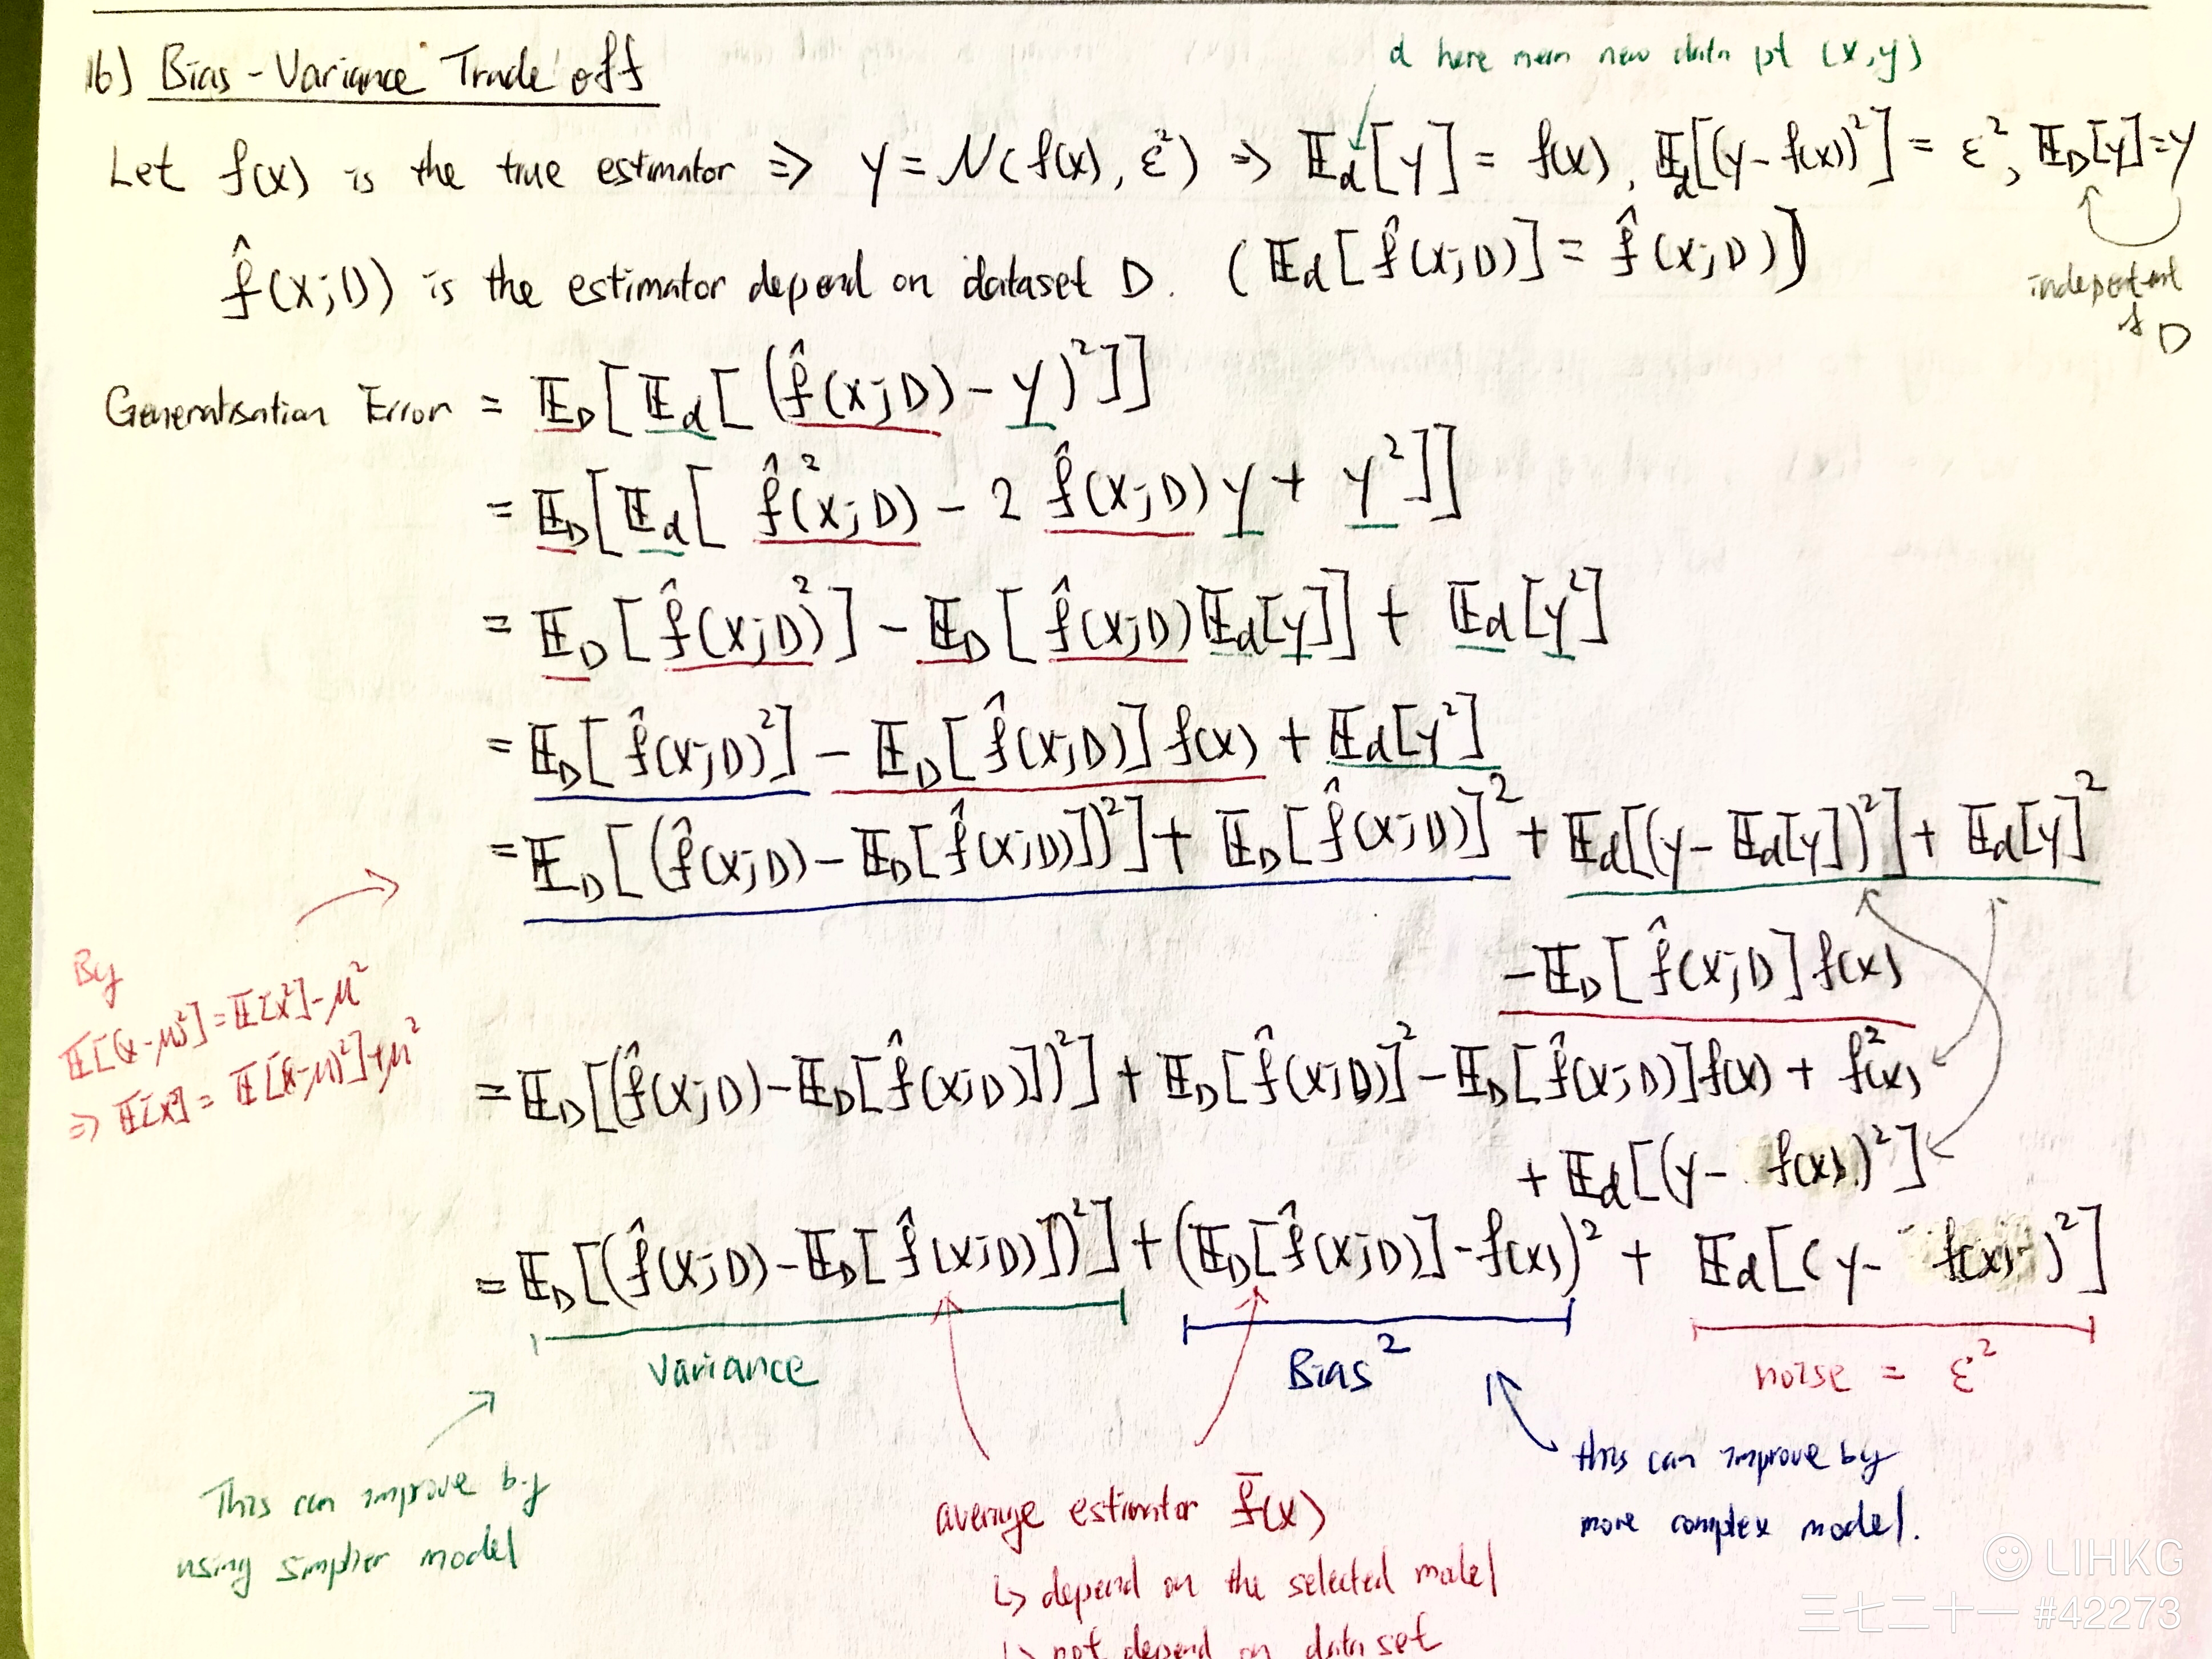 16) Bias-Variance Trade off
d here mean new data pt (x,y)
Let f(x) is the true estimator ⇒ y = N(f(x), ε²) ⇒ 𝔼d[y] = f(x), 𝔼d[(y-f(x))²] = ε², 𝔼D[y]=y
f̂(x;D) is the estimator depend on dataset D. (𝔼d[f̂(x;D)] = f̂(x;D))
independent
of D
Generalisation Error = 𝔼D[𝔼d[(f̂(x;D) - y)²]]
= 𝔼D[𝔼d[f̂²(x;D) - 2 f̂(x;D) y + y²]]
= 𝔼D[f̂(x;D)²] - 𝔼D[f̂(x;D)𝔼d[y]] + 𝔼d[y²]
= 𝔼D[f̂(x;D)²] - 𝔼D[f̂(x;D)] f(x) + 𝔼d[y²]
= 𝔼D[(f̂(x;D) - 𝔼D[f̂(x;D)])²] + 𝔼D[f̂(x;D)]² + 𝔼d[(y - 𝔼d[y])²] + 𝔼d[y]²
- 𝔼D[f̂(x;D] f(x)
By
𝔼[(x-μ)²] = 𝔼[x²] - μ²
⇒ 𝔼[x²] = 𝔼[(x-μ)²] + μ²
= 𝔼D[(f̂(x;D) - 𝔼D[f̂(x;D)])²] + 𝔼D[f̂(x;D)]² - 𝔼D[f̂(x;D)]f(x) + f²(x)
+ 𝔼d[(y - f(x))²]
= 𝔼D[(f̂(x;D) - 𝔼D[f̂(x;D)])²] + (𝔼D[f̂(x;D)] - f(x))² + 𝔼d[(y - f(x))²]
Variance
Bias²
noise = ε²
This can improve by
using simplier model
average estimator f̄(x)
↳ depend on the selected model
↳ not depend on data set
this can improve by
more complex model.
LIHKG
三七二十一 #42273